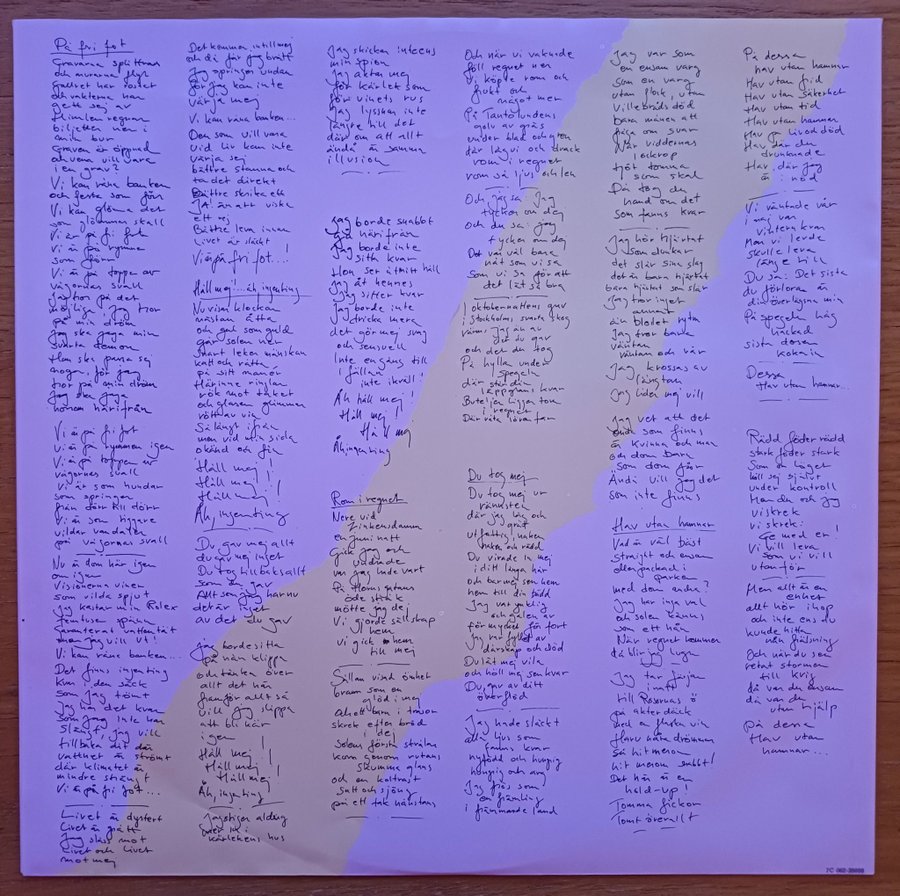 På fri fot
Gravarna splittras
och murarna flyr
Gallret har rostat
och vakterna har
gett sej av
Himlen regnar
biljetten men i
min bur
Graven är öppnad
och vem vill vare
i en grav?
Vi kan råna banken
och festa som förr
Vi kan glömma det
som glömmas skall
Vi är på fri fot
Vi är på rymmen
som förr
Vi är på toppen av
vågornas svall
Jag tror på det
möjliga, jag tror
på min dröm
Jag ska jaga min
svarta demon
Hon ska passa sej
noga, för jag
tror på min dröm
Jag ska jaga
honom härifrån
Vi är på fri fot
Vi är på rymmen igen
Vi är på toppen av
vågornas svall
Vi är som hundar
som springer
från dörr till dörr
Vi är som ryggar
vildar vandaler
på vågornas svall
Nu är dom här igen
om igen
Visionerna viner
som vilda spjut
Jag kastar min Rolex
Garanterat vattentät
men jag vill ut!
Vi kan råna banken...
Det finns ingenting
kvar i den säck
som jag tömt
Jag har det kvar
som jag inte har
slängt, jag vill
tillbaka dit där
vattnet är strömt
där klimatet är
mindre strängt
Vi är på fri fot...
Livet är dystert
Livet är grått
Jag slåss mot
Livet och Livet
mot mej
Det kommer intill mej
och då får jag brått
Jag springer undan
för jag kan inte
värja mej
Vi kan råna banken...
Den som vill vara
vid liv kan inte
värja sej
bättre stanna och
ta det direkt
Bättre skrika ett
JA! än att viska
ett nej
Bättre leva innan
Livet är släckt
Vi är på fri fot....!
Håll mej!..åh, ingenting
Nu visar klockan
nästan åtta
och gul som guld
går solen ner
Snart leker människan
katt och råtta
på sitt manér
Här inne ringlar
rök mot taket
och glasen glimmar
rött av vin
Så långt ifrån
men vid min sida
okänd och fin
Håll mej!
Håll mej!
Håll mej!
Åh, ingenting
Du gav mej allt
du gav mej inget
Du tog tillbaks allt
som du gav
Allt som jag har nu
det är inget
av det du gav
Jag borde sitta
på nån klippa
och tänka över
allt det här
framför allt så
vill jag slippa
att bli kär
igen
Håll mej!
Håll mej!
Håll mej
Åh, ingenting
Jag stiger aldrig
mer in i
kärlekens hus
Jag skickar inte ens
min spion
Jag aktar mej
för kärlet som
för vinets rus
Jag lyssnar inte
längre till det
där om att allt
ändå är samma
illusion
Jag borde snabbt
gå härifrån
Jag borde inte
sitta kvar
Hon ser åt mitt håll
jag åt hennes
Jag sitter kvar
Jag borde inte
dricka mera
det gör mej svag
och sensuell
Inte en gång till
i fällan
inte ikväll!
Åh håll mej!
Håll mej!
Håll mej
Åh, ingenting
Rom i regnet
Nere vid
Zinkensdamm
en juni natt
Gick jag och
undrade
var jag hade vart
På Hornsgatans
öde stråk
mötte jag dej
Vi gjorde sällskap
hem
vi gick hem
till mej
Sällan visad ömhet
brann som en
glöd i mej
Och ett barn i trasor
skrek efter bröd
i dej
Solens första strålar
kom genom rutans
skumma glas
och en koltrast
satt och sjöng
på ett tak nånstans
Och när vi vaknade
föll regnet ner
Vi köpte rom och
frukt och
något mer
På Tantolundens
golv av gräs
under blad och gren
där låg vi och drack
rom i regnet
rom så ljus och len
Och jag sa: Jag
tycker om dej
och du sa: jag
tycker om dej
Det var väl bara
nåt som vi sa
Som vi sa för att
det lät så bra
I oktobernattens grus
i Stockholms svarta skog
värms jag än av
det du gav
och det du tog
På hyllan under
spegeln
där står din
läppglans kvar
Buteljen ligger tom
i regnet
Där våta löven far
Du tog mej
Du tog mej ur
rännsten
där jag låg och
grät
utfattig, naken
naken och rädd
Du virade in mej
i ditt långa hår
och bar mej sen hem
hem till din bädd
Jag var ynklig
och galen är
för mycket för fort
Jag var fylld av
dårskap och död
Du lät mej vila
och höll mej sen kvar
Du gav av ditt
överflöd
Jag hade släckt
alla ljus som
fanns kvar
nyfödd och hungrig
hungrig och arm
Jag frös som
en främling
i främmande land
Jag var som
en ensam varg
som en varg
utan flock, utan
villebråds död
bara månen att
fråga om svar
När viddernas
lockrop
tjöt tomma
i som skal
Då tog du
hand om det
som fanns kvar
Jag hör hjärtat
som dunkar
det slår sina slag
det är bara hjärtat
bara hjärtat som slår
Jag tror inget
annat
än blodet ryta
Jag tror bara
väntan
väntan och vår
Jag krossas av
längtan
Jag lider mej vill
Jag vet att det
enda som finns
är kvinna och man
och dom bara
som dom får
Ändå vill jag det
som inte finns
Hav utan hamnar
Vad är väl bäst
straight och ensam
eller packad i
parken
med dom andra?
Jag har inga val
och solen känns
som ett hån
När regnet kommer
då blir jag lugn
Jag tar färjan
i natt
till Rosornas ö
på akterdäck
med en flaska vin
Havu nära drömmen
så hit med en
hit med en snabbt!
Det här är en
hold-up!
Tomma fickor
Tomt överallt
På dessa
Hav utan hamnar
Hav utan frid
Hav utan säkerhet
Hav utan tid
Hav utan hamnar
Hav på liv och död
Hav där du
drunknade
Hav där jag
är i nöd
Vi väntade vår
i maj var
vintern kvar
Men vi levde
skulle leva
länge till
Du sa: Det sista
du förlorar är
din överlägsna min
På spegeln låg
hackad
sista dosen
kokain
Dessa
Hav utan hamnar...
Rädd föder rädd
stark föder stark
Som en luguet
håll sej självt
under kontroll
Men du och jag
vi skrek
vi skrek:
Ge med er!
Vi vill leva
som vi vill
utanför
Men allt är en
enhet
allt hör ihop
och inte ens du
kunde hitta
nån frälsning
Och när du sen
retat stormen
till krig
då var du ensam
då var du
utan hjälp
På dessa
Hav utan
hamnar...
7C 062-35898